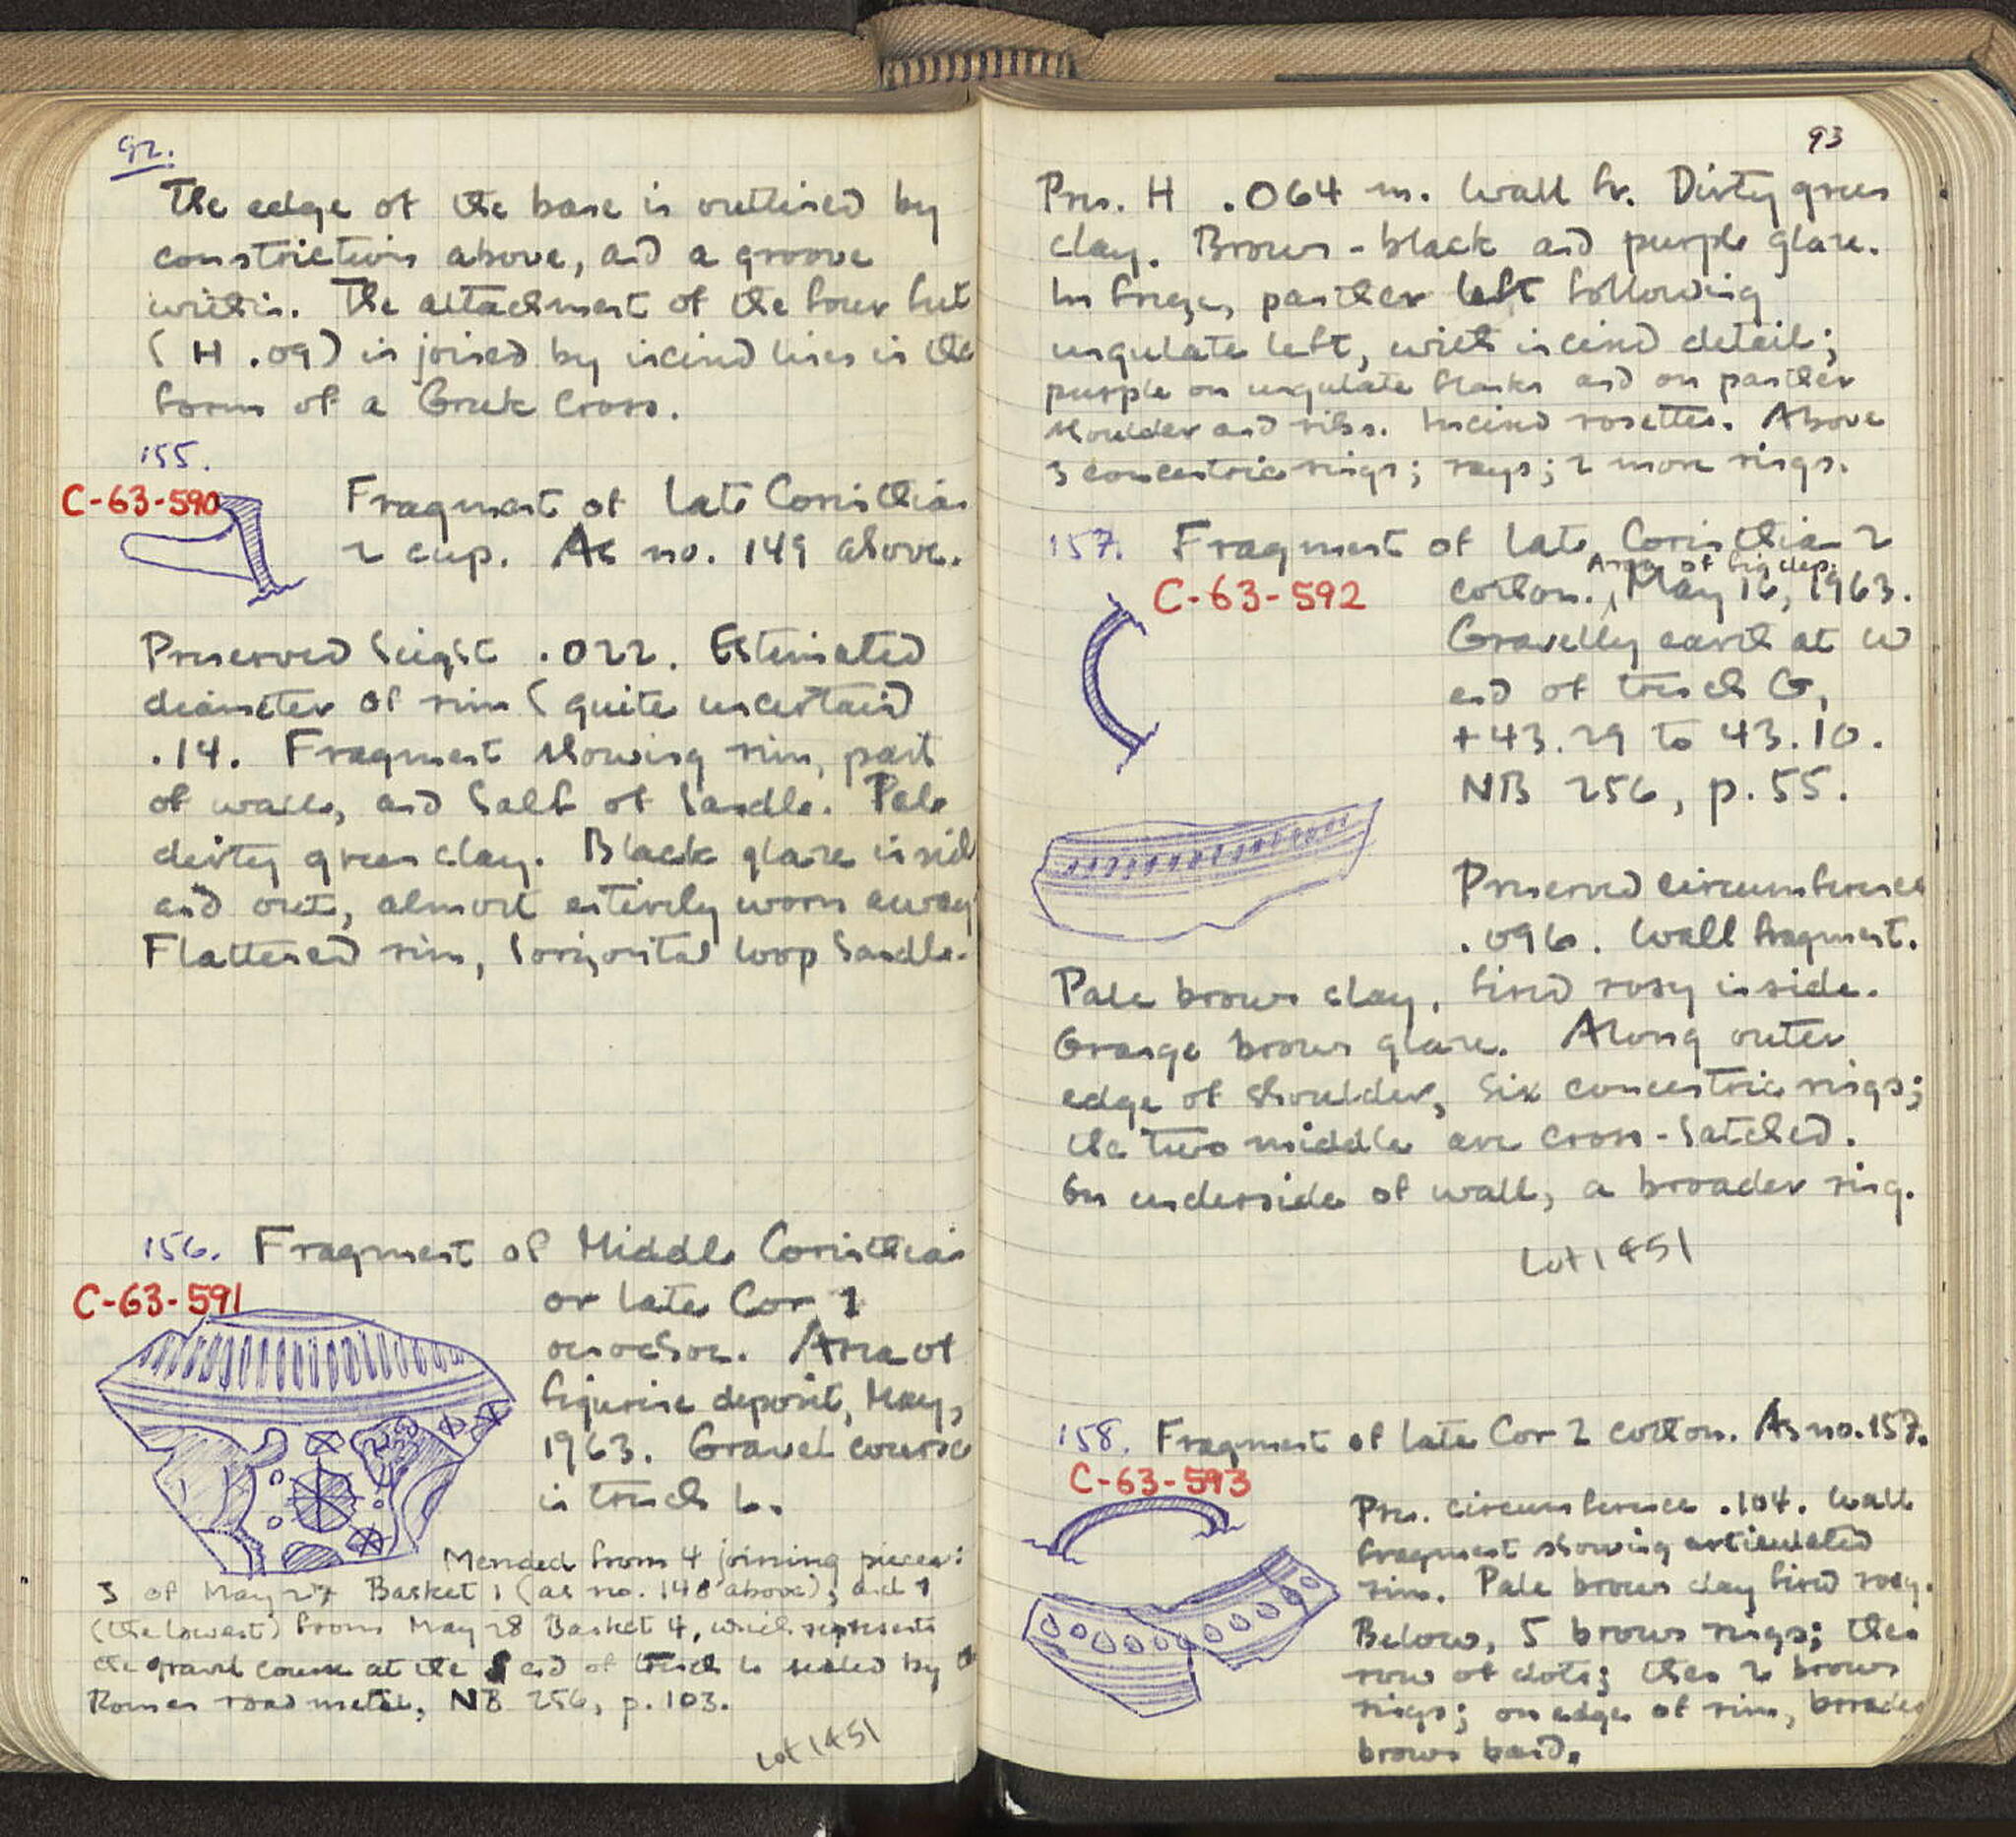 92.
The edge of the base is outlined by
constriction above, and a groove
within. The attachment of the four feet
(H .09) is joined by incised lines in the
form of a Greek Cross.
155.
C-63-590
Fragment of Late Corinthian
2 cup. As no. 149 above.
Preserved height .022. Estimated
diameter of rim (quite uncertain)
.14. Fragment showing rim, part
of wall, and half of handle. Pale
dirty green clay. Black glaze inside
and out, almost entirely worn away
Flattened rim, horizontal loop handle.
156. Fragment of Middle Corinthian
C-63-591
or Late Cor 1
oenochoe. Area of
figurine deposit, May,
1963. Gravel course
in trench L.
Mended from 4 joining pieces:
3 of May 27 Basket 1 (as no. 148 above); and 1
(the lowest) from May 28 Basket 4, which represents
the gravel course at the S end of trench L sealed by
Roman road metal, NB 256, p. 103.
Lot 1451
93
Pres. H .064 m. Wall fr. Dirty green
clay. Brown-black and purple glaze.
In frieze, panther left following
ungulate left, with incised detail;
purple on ungulate flanks and on panther
shoulder and ribs. Incised rosettes. Above
3 concentric rings; rays; 2 more rings.
157. Fragment of Late Corinthian 2
Area of fig dep.
C-63-592
cothon., May 16, 1963.
Gravelly earth at W
end of trench G,
+43.29 to 43.10.
NB 256, p. 55.
Preserved circumference
.096. Wall fragment.
Pale brown clay, fired rosy inside.
Orange brown glaze. Along outer
edge of shoulder, six concentric rings;
the two middle are cross-hatched.
On underside of wall, a broader ring.
Lot 1451
158. Fragment of Late Cor 2 cothon. As no. 157.
C-63-593
Pres. circumference .104. Wall
fragment showing articulated
rim. Pale brown clay fired rosy.
Below, 5 brown rings; then
row of dots; then 2 brown
rings; on edge of rim, broader
brown band.